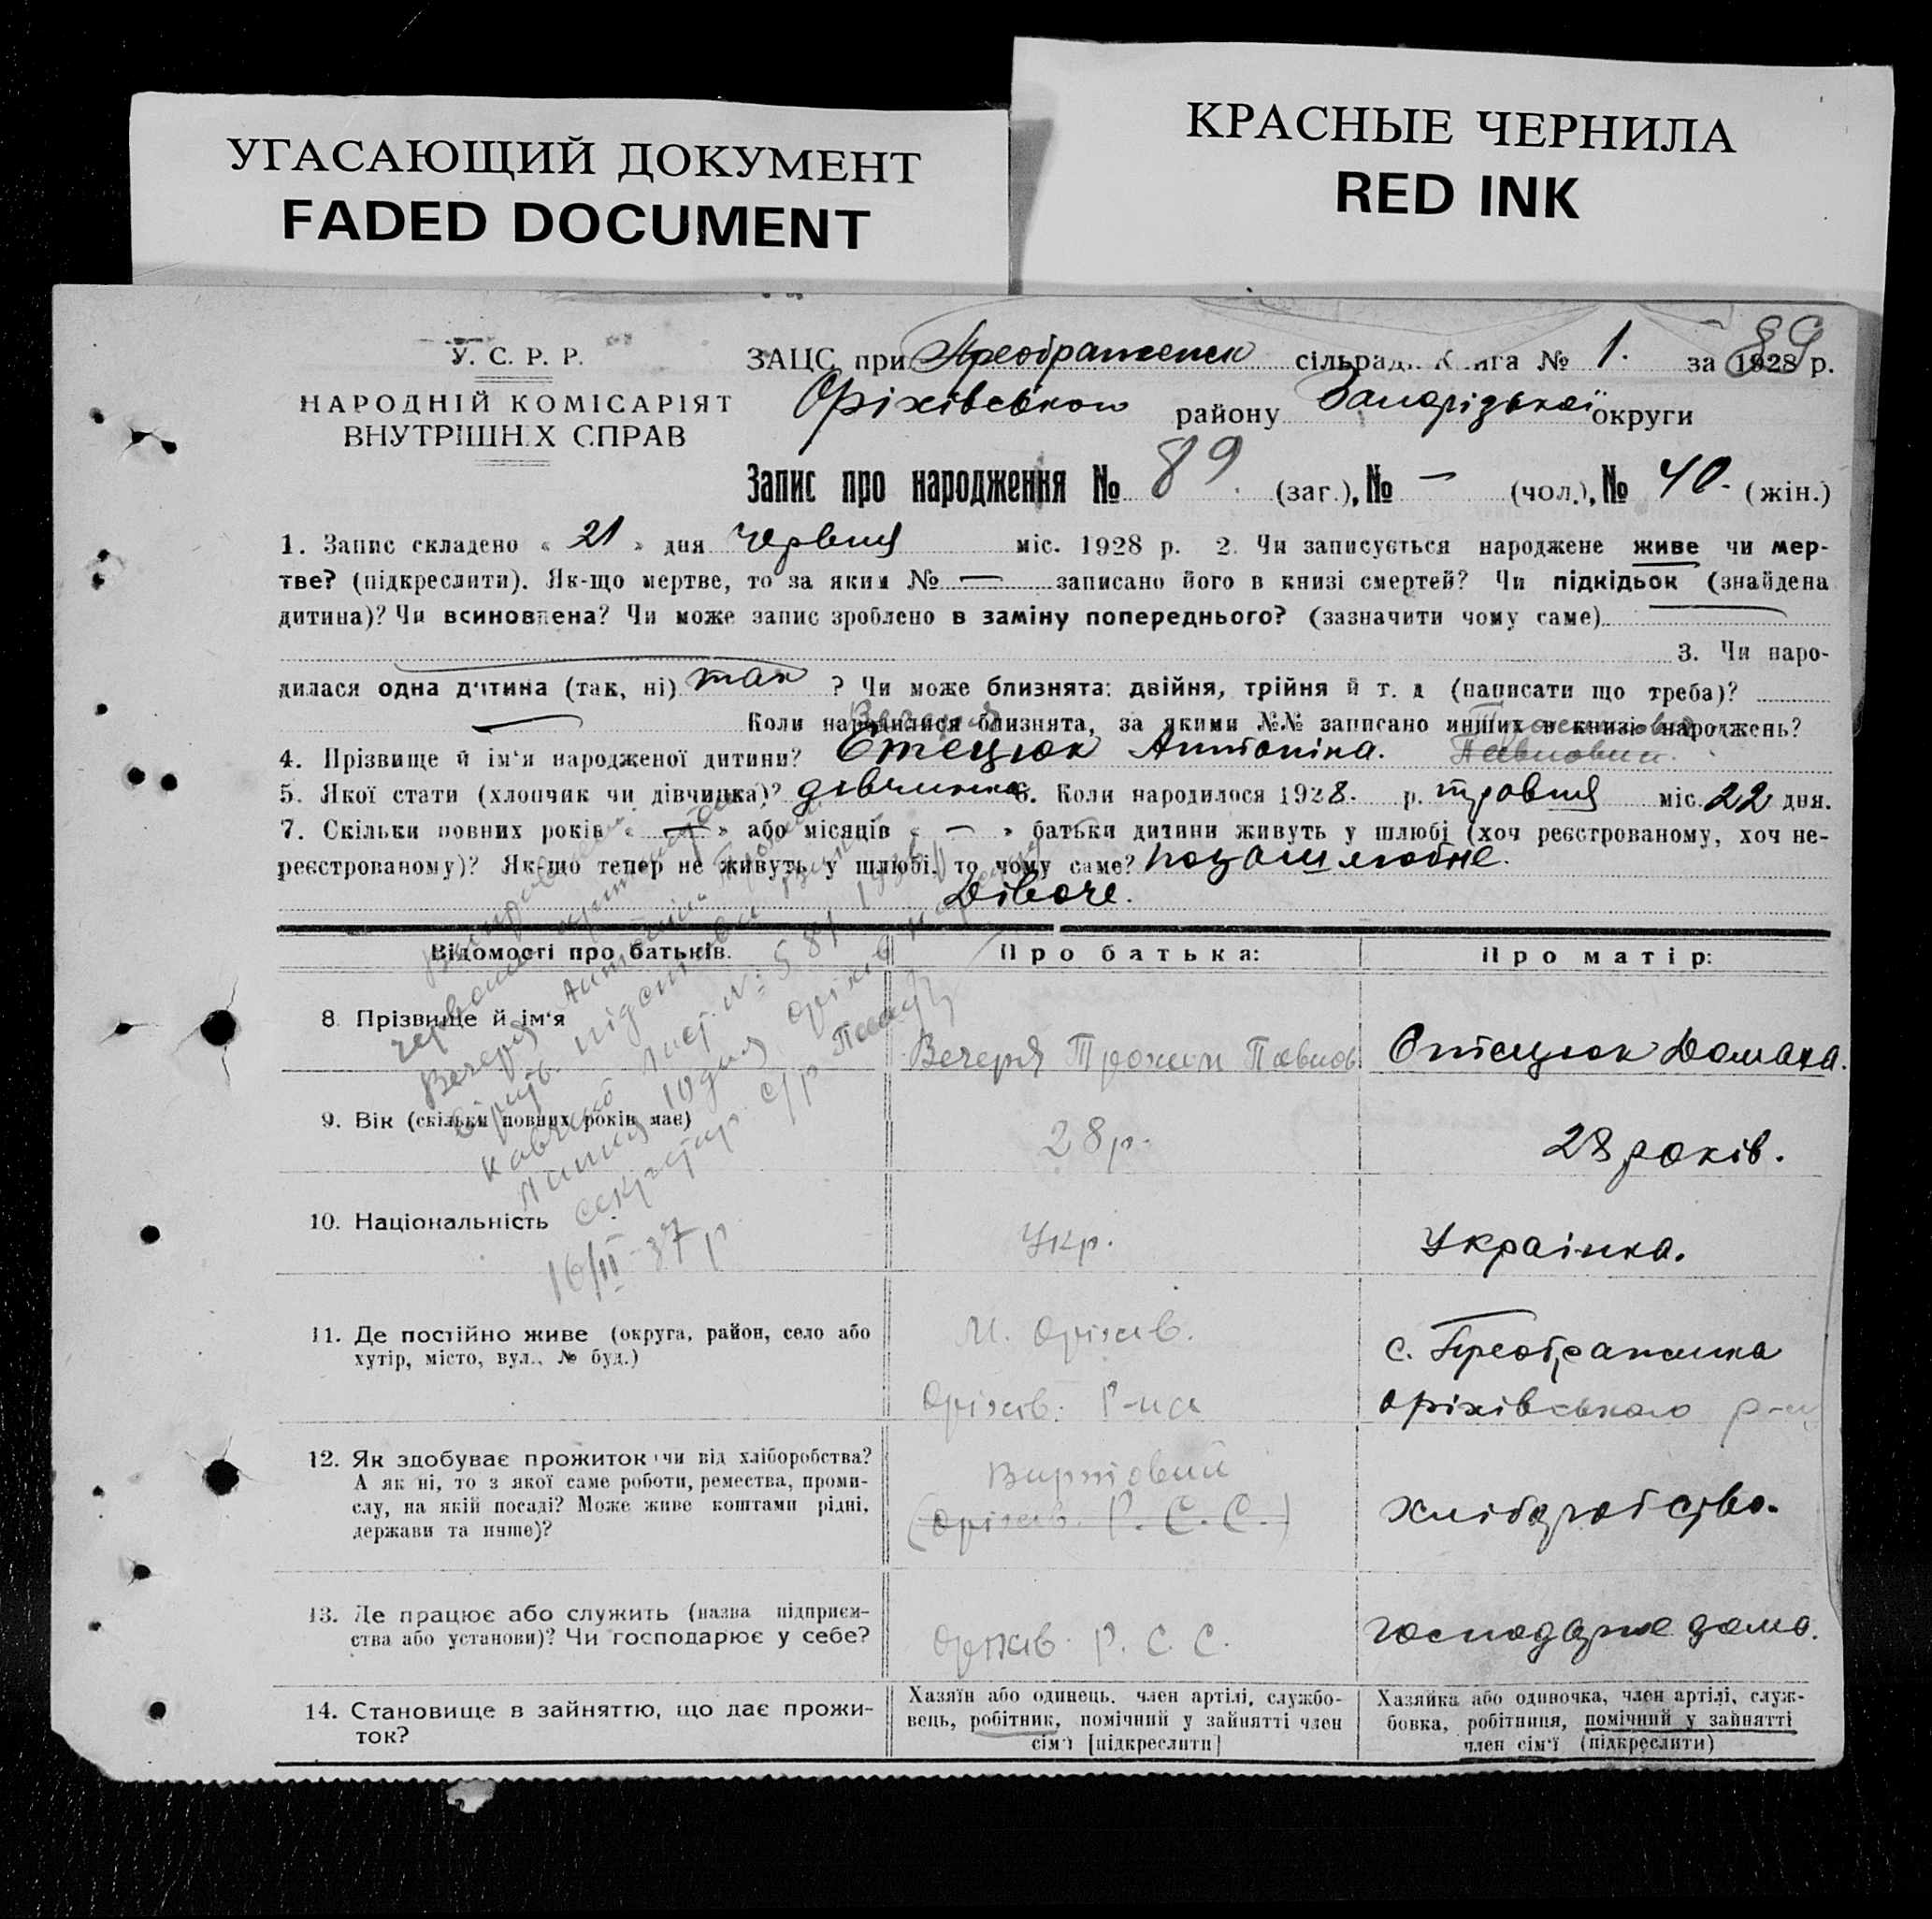 УГАСАЮЩИЙ ДОКУМЕНТ
FADED DOCUMENT
КРАСНЫЕ ЧЕРНИЛА
RED INK
У. С. Р. Р.
НАРОДНІЙ КОМІСАРІЯТ
ВНУТРІШНІХ СПРАВ
ЗАЦС при Преображенск сільрад. Книга № 1. за 1928 р.
89
Оріхівського району Запорізької округи
Запис про народження № 89. (заг.), № — (чол.), № 40. (жін.)
1. Запис складено « 21 » дня червня міс. 1928 р. 2. Чи записується народжене живе чи мер-
тве? (підкреслити). Як-що мертве, то за яким № — записано його в книзі смертей? Чи підкідьок (знайдена
дитина)? Чи всиновлена? Чи може запис зроблено в заміну попереднього? (зазначити чому саме)
3. Чи наро-
дилася одна дитина (так, ні) так ? Чи може близнята: двійня, трійня й т. д (написати що треба)?
— Коли народилися близнята, за якими №№ записано инших в книзі народжень?
Вечеря
4. Прізвище й ім'я народженої дитини? Стецюк Антоніна. Павловна.
5. Якої стати (хлопчик чи дівчинка)? дівчинка 6. Коли народилося 1928. р. травня міс. 22 дня.
7. Скільки повних років « — » або місяців « — » батьки дитини живуть у шлюбі (хоч реєстрованому, хоч не-
реєстрованому)? Як-що тепер не живуть у шлюбі, то чому саме? позашлюбне.
Дівоче.
Відомості про батьків. Про батька: Про матір:
8. Прізвище й ім'я Вечеря Трохим Павлов Стецюк Домаха.
9. Вік (скільки повних років має) 28 р. 28 років.
10. Національність Укр. Українка.
11. Де постійно живе (округа, район, село або
хутір, місто, вул., № буд.)
М. Оріхів.
Оріхів. Р-на
с. Преображенка
Оріхівського р-ну
12. Як здобуває прожиток чи від хліборобства?
А як ні, то з якої саме роботи, ремества, проми-
слу, на якій посаді? Може живе коштами рідні,
держави та инше)?
(Оріхів. Р. С. С.)
Хліборобство.
13. Де працює або служить (назва підприєм-
ства або установи)? Чи господарює у себе?
Оріхів. Р. С. С.
господарює дома.
14. Становище в зайняттю, що дає прожи-
ток?
Хазяїн або одинець, член артілі, службо-
вець, робітник, помічний у зайнятті член
сім'ї [підкреслити]
Хазяйка або одиночка, член артілі, служ-
бовка, робітниця, помічний у зайнятті
член сім'ї (підкреслити)
Вечеря Антоніна
№ 581
секретар с/р
16/II-37 р